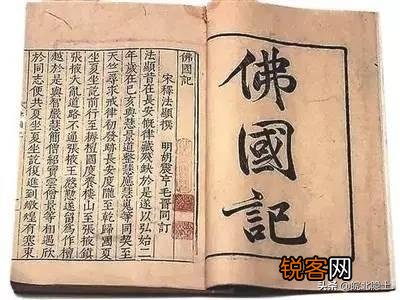 佛國記
佛國記
宋釋法顯撰 明胡震亨毛晉同訂
法顯昔在長安慨律藏殘缺於是遂以弘始二
年歲在己亥與慧景道整慧應慧嵬等同契至
天竺尋求戒律初發跡長安度隴至乾歸國夏
坐夏坐訖前行至耨檀國度養樓山至張掖鎮
張掖大亂道路不通張掖王慇懃遂留爲作檀
越於是與智嚴慧簡僧紹寶雲僧景等相遇欣
於同志便共夏坐夏坐訖復進到燉煌有塞東
锐客网